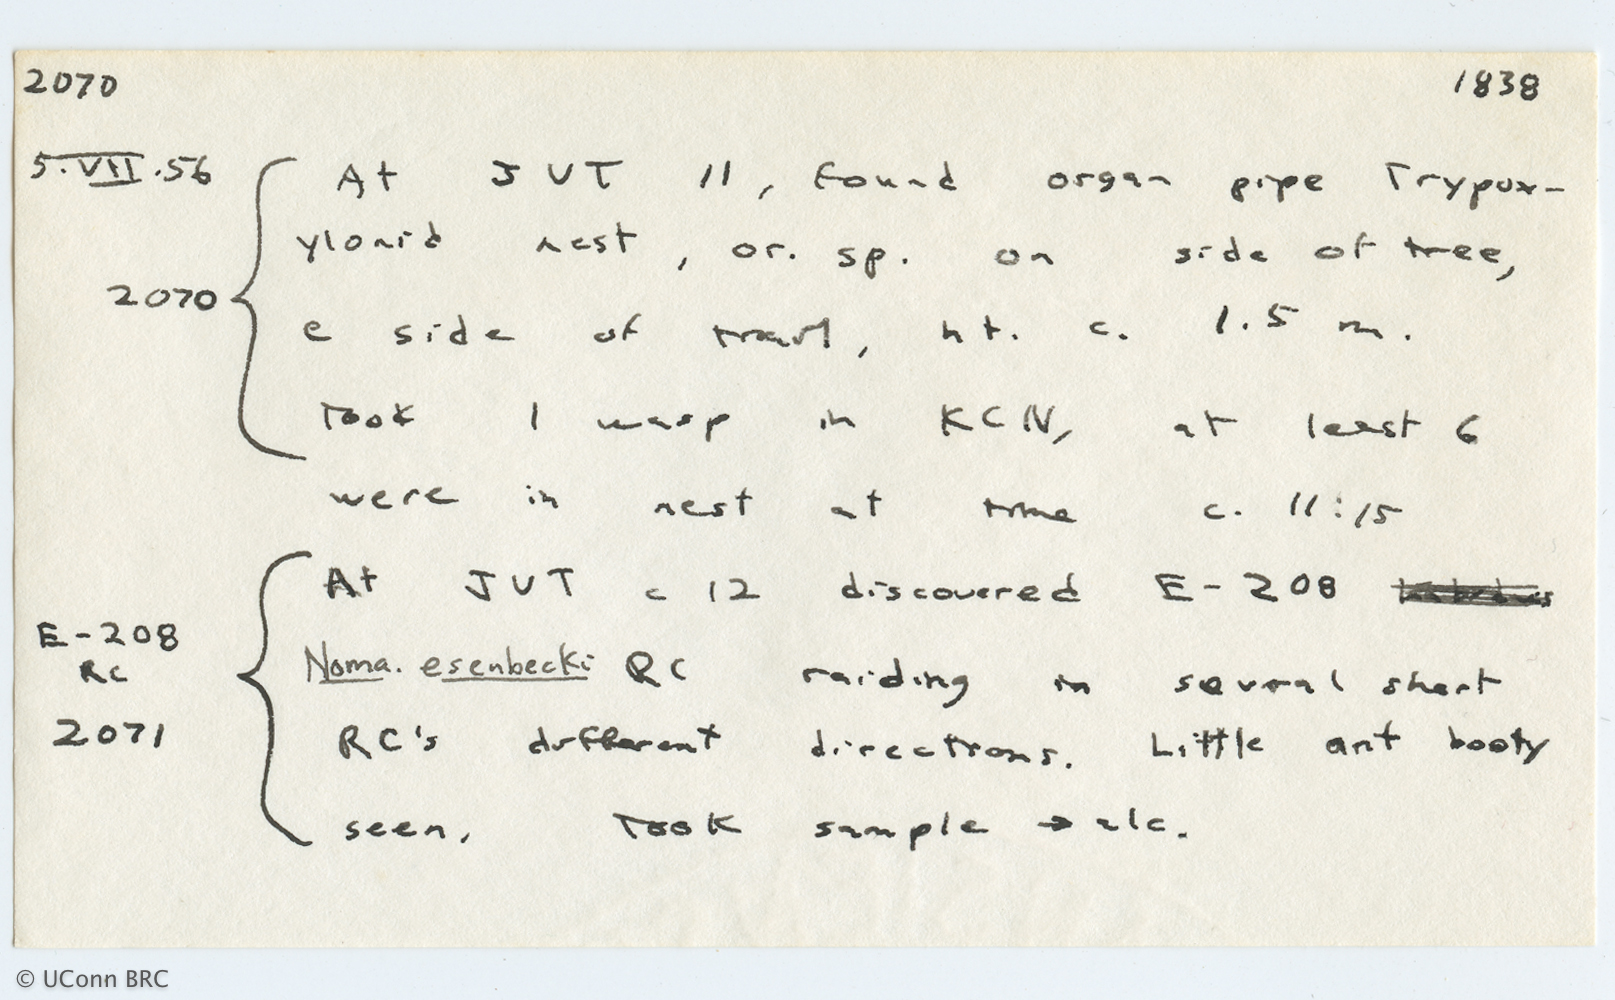 2070 1838
5.VII.56 At JUT 11, found organ pipe Trypox-
ylonid nest, or. sp. on side of tree,
2070 e side of trail, ht. c. 1.5 m.
Took 1 wasp in KCN, at least 6
were in nest at time c. 11:15
At JUT c 12 discovered E-208
E-208 Noma. esenbecki RC raiding in several short
RC
2071 RC's different directions. Little ant booty
seen. Took sample → alc.
© UConn BRC